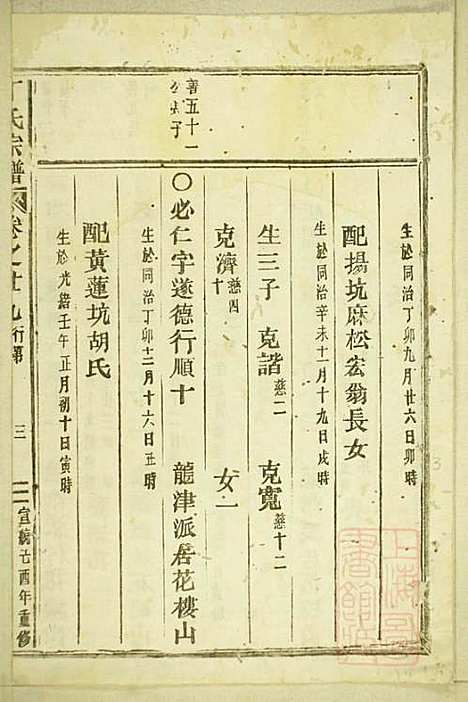 生於同治丁卯九月廿六日卯時
配揚坑麻松宏翁長女
生於同治辛未十一月十九日戌時
生三子 克諧慈二 克寬慈十二
克濟慈四十 女一
善五十一公長子
○必仁字遂德行順十 龍津派居花樓山
生於同治丁卯十二月十六日丑時
配黃蓮坑胡氏
生於光緒壬午正月初十日寅時
丁氏宗譜 卷之廿九 行第 三 宣統己酉年重修